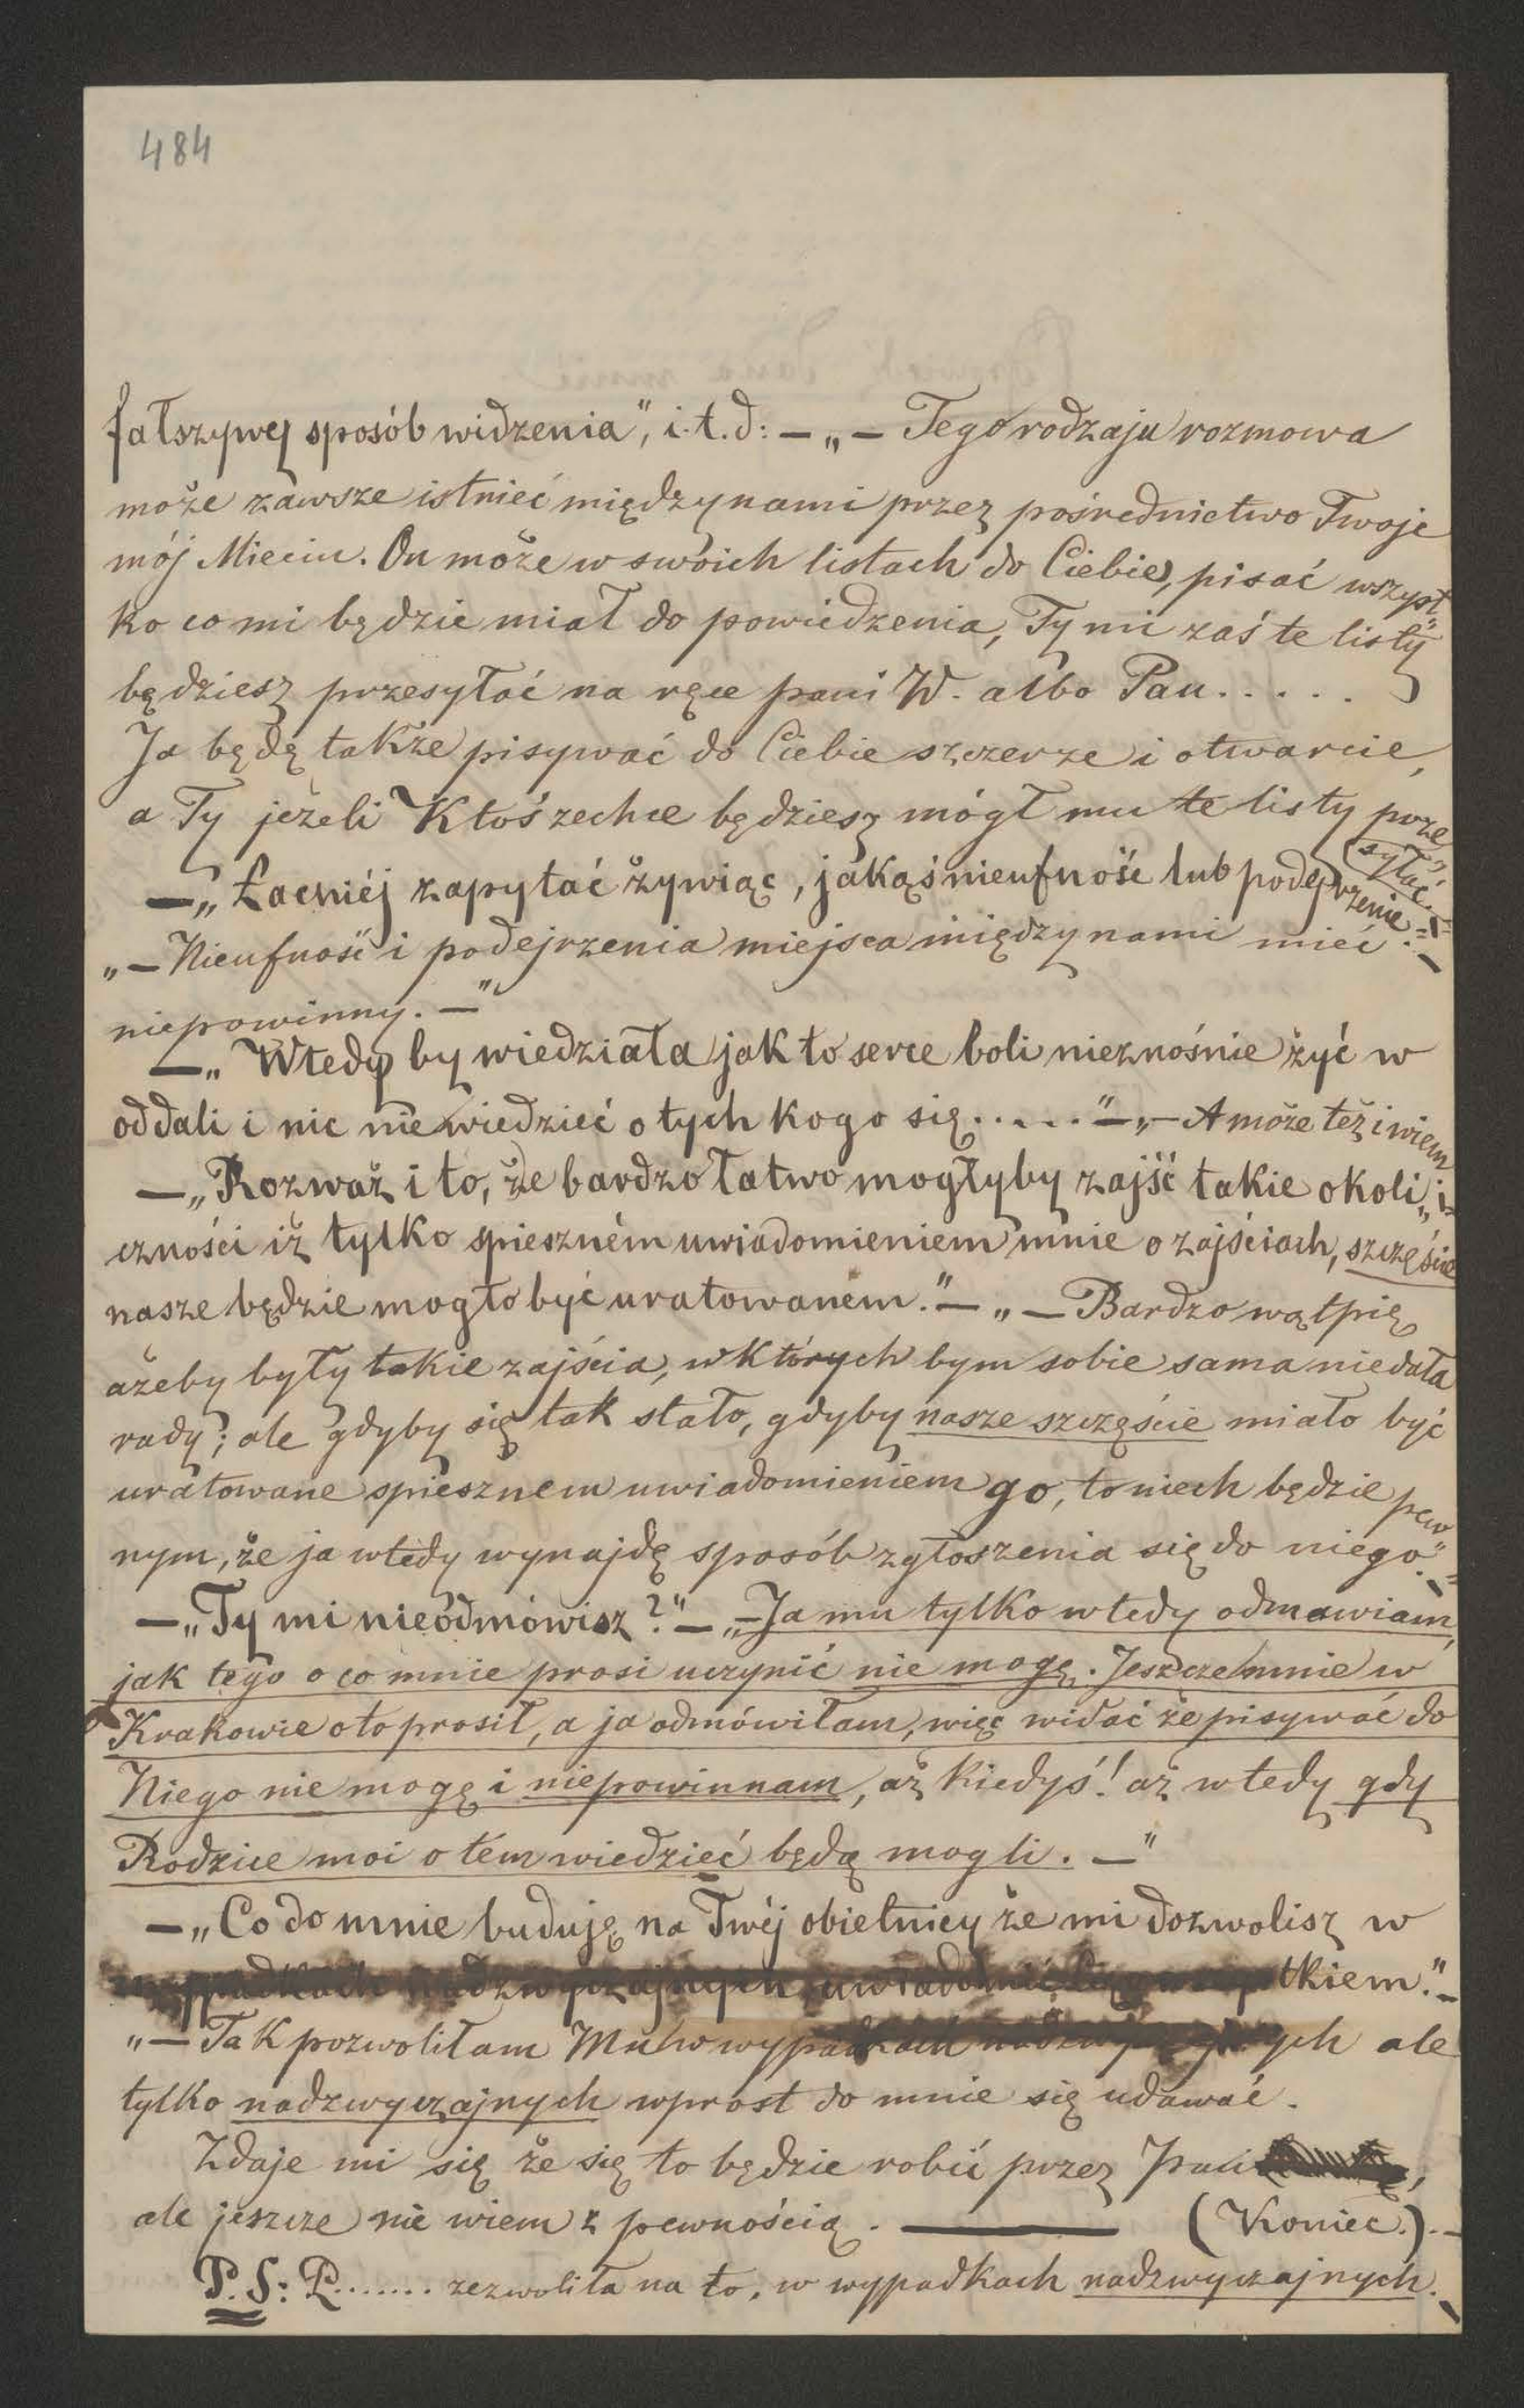 484
fałszywej sposób widzenia", i.t.d: — „— Tego rodzaju rozmowa
może zawsze istnieć między nami przez pośrednictwo Twoje
mój Mieciu. On może w swoich listach do Ciebie, pisać wszyst„
ko co mi będzie miał do powiedzenia, Ty mi zaś te listy
będziesz przesyłać na ręce pani W. albo Pau.....
Ja będę także pisywać do Ciebie szczerze i otwarcie,
a Ty jeżeli Ktoś zechce będziesz mógł mu te listy prze„
syłać. —"
— „Łacniéj zapytać żywiąc, jakąś nieufność lub podejrzenie."—
„— Nieufność i podejrzenia miejsca między nami mieć
niepowinny. —"
— „Wtedy by wiedziała jak to serce boli nieznośnie żyć w
oddali i nic nie wiedzieć o tych kogo się....." — „— A może też i wiem
— „Rozważ i to, że bardzo łatwo mogłyby zajść takie okoli„
czności iż tylko spieszném uwiadomieniem mnie o zajściach, szczęście
nasze będzie mogło być uratowanem." — „— Bardzo wątpię
ażeby były takie zajścia, w których bym sobie sama niedała
rady; ale gdyby się tak stało, gdyby nasze szczęście miało być
uratowane spiesznem uwiadomieniem go, to niech będzie pew„
nym, że ja wtedy wynajdę sposób zgłoszenia się do niego."—
— „Ty mi nieodmówisz?" — „— Ja mu tylko wtedy odmawiam,
jak tego o co mnie prosi uczynić nie mogę. Jeszcze mnie w
Krakowie o to prosił, a ja odmówiłam, więc widać że pisywać do
Niego nie mogę i niepowinnam, aż kiedyś! aż wtedy gdy
Rodzice moi o tém wiedzieć będą mogli. —"
— „Co do mnie buduję na Twéj obietnicy że mi dozwolisz w
wypadkach nadzwyczajnych uwiadomić Cię o wszystkiem."—
„— Tak pozwoliłam Mu w wypadkach nadzwyczajnych ale
tylko nadzwyczajnych wprost do mnie się udawać.
Zdaje mi się że się to będzie robić przez Pani ,
ale jeszcze nie wiem z pewnością. ——— (Koniec.).—
P.S: P....... zezwoliła na to, w wypadkach nadzwyczajnych.—